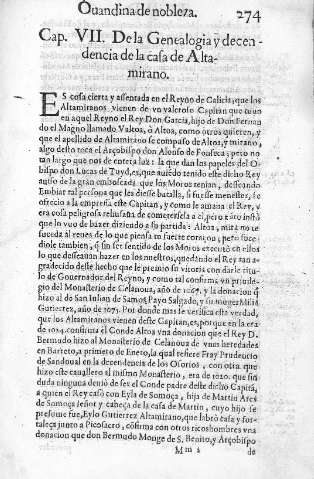 Ouandina de nobleza. 274
Cap. VII. De la Genealogia y decen-
dencia de la casa de Alta-
mirano.
ES cosa cierta y assentada en el Reyno de Galicia, que los
Altamiranos vienen de vn valeroso Capitan que tuuo
en aquel Reyno el Rey Don Garcia, hijo de Don Fernan
do el Magno llamado Altoa, como otros quieren, y
que el apellido de Altamirano se compuso de Altoa, y mirano,
algo desto toca el Arçobispo don Alonso de Fonseca; pero no
tan largo que nos de entera luz: la que dan los papeles del Obispo
don Lucas de Tuyd, es, que auiẽdo tenido este dicho Rey
auiso de la gran emboscada que los Moros tenian, desseando
Embiar tal persona que les diesse batalla, si fuesse menester, se
ofrecio a la empresa este Capitan, y como le amaua el Rey, y
era cosa peligrosa rehusaua de cometersela a el, pero
que lo vuo de hazer diziendo a su partida: Altoa, mira no te
suceda al reues de lo que piensa tu fuerte coraçon; pero suce-
diole tambien, q sin ser sentido de los Moros executò en ellos
lo que desseauan hazer en los nuestros, quedando el Rey tan a-
gradecido deste hecho que le premio su vitoria con darle titu-
lo de Gouernador del Reyno, y como tal confirma vn priuile-
gio del Monasterio de Celanoua, año de y la donacion q
hizo al de San Iulian de Samos, Payo Salgado, y su muger
Gutierrez, año de 1073. Por donde mas se verifica esta verdad,
que los Altamiranos vienen deste Capitan, es, porque en la era
de 1034. confirma el Conde Altoa vna donacion que el Rey D.
Bermudo hizo al Monasterio de Celanoua de vnas heredades
en Barieto, a primero de Enero, la qual refiere Fray Prudencio
de Sandoual en la decendencia de los Osorios, con otra que
hizo este cauallero al mismo Monasterio, era de 1020. que sin
duda ninguna deuiò de ser el Conde padre deste dicho Capitã,
a quien el Rey casò con Eyla de Somoça, hija de Martin Ares
de Somoça señor y cabeça de la casa de Martin, cuyo hijo se
presume fue, Eylo Gutierrez Altamirano, que labrò casa y for-
taleça junto a Picosacro, cõfirma con otros ricoshombres vna
donacion que don Bermudo Monge de S. Benito, y Arçobispo
Mm 2 de